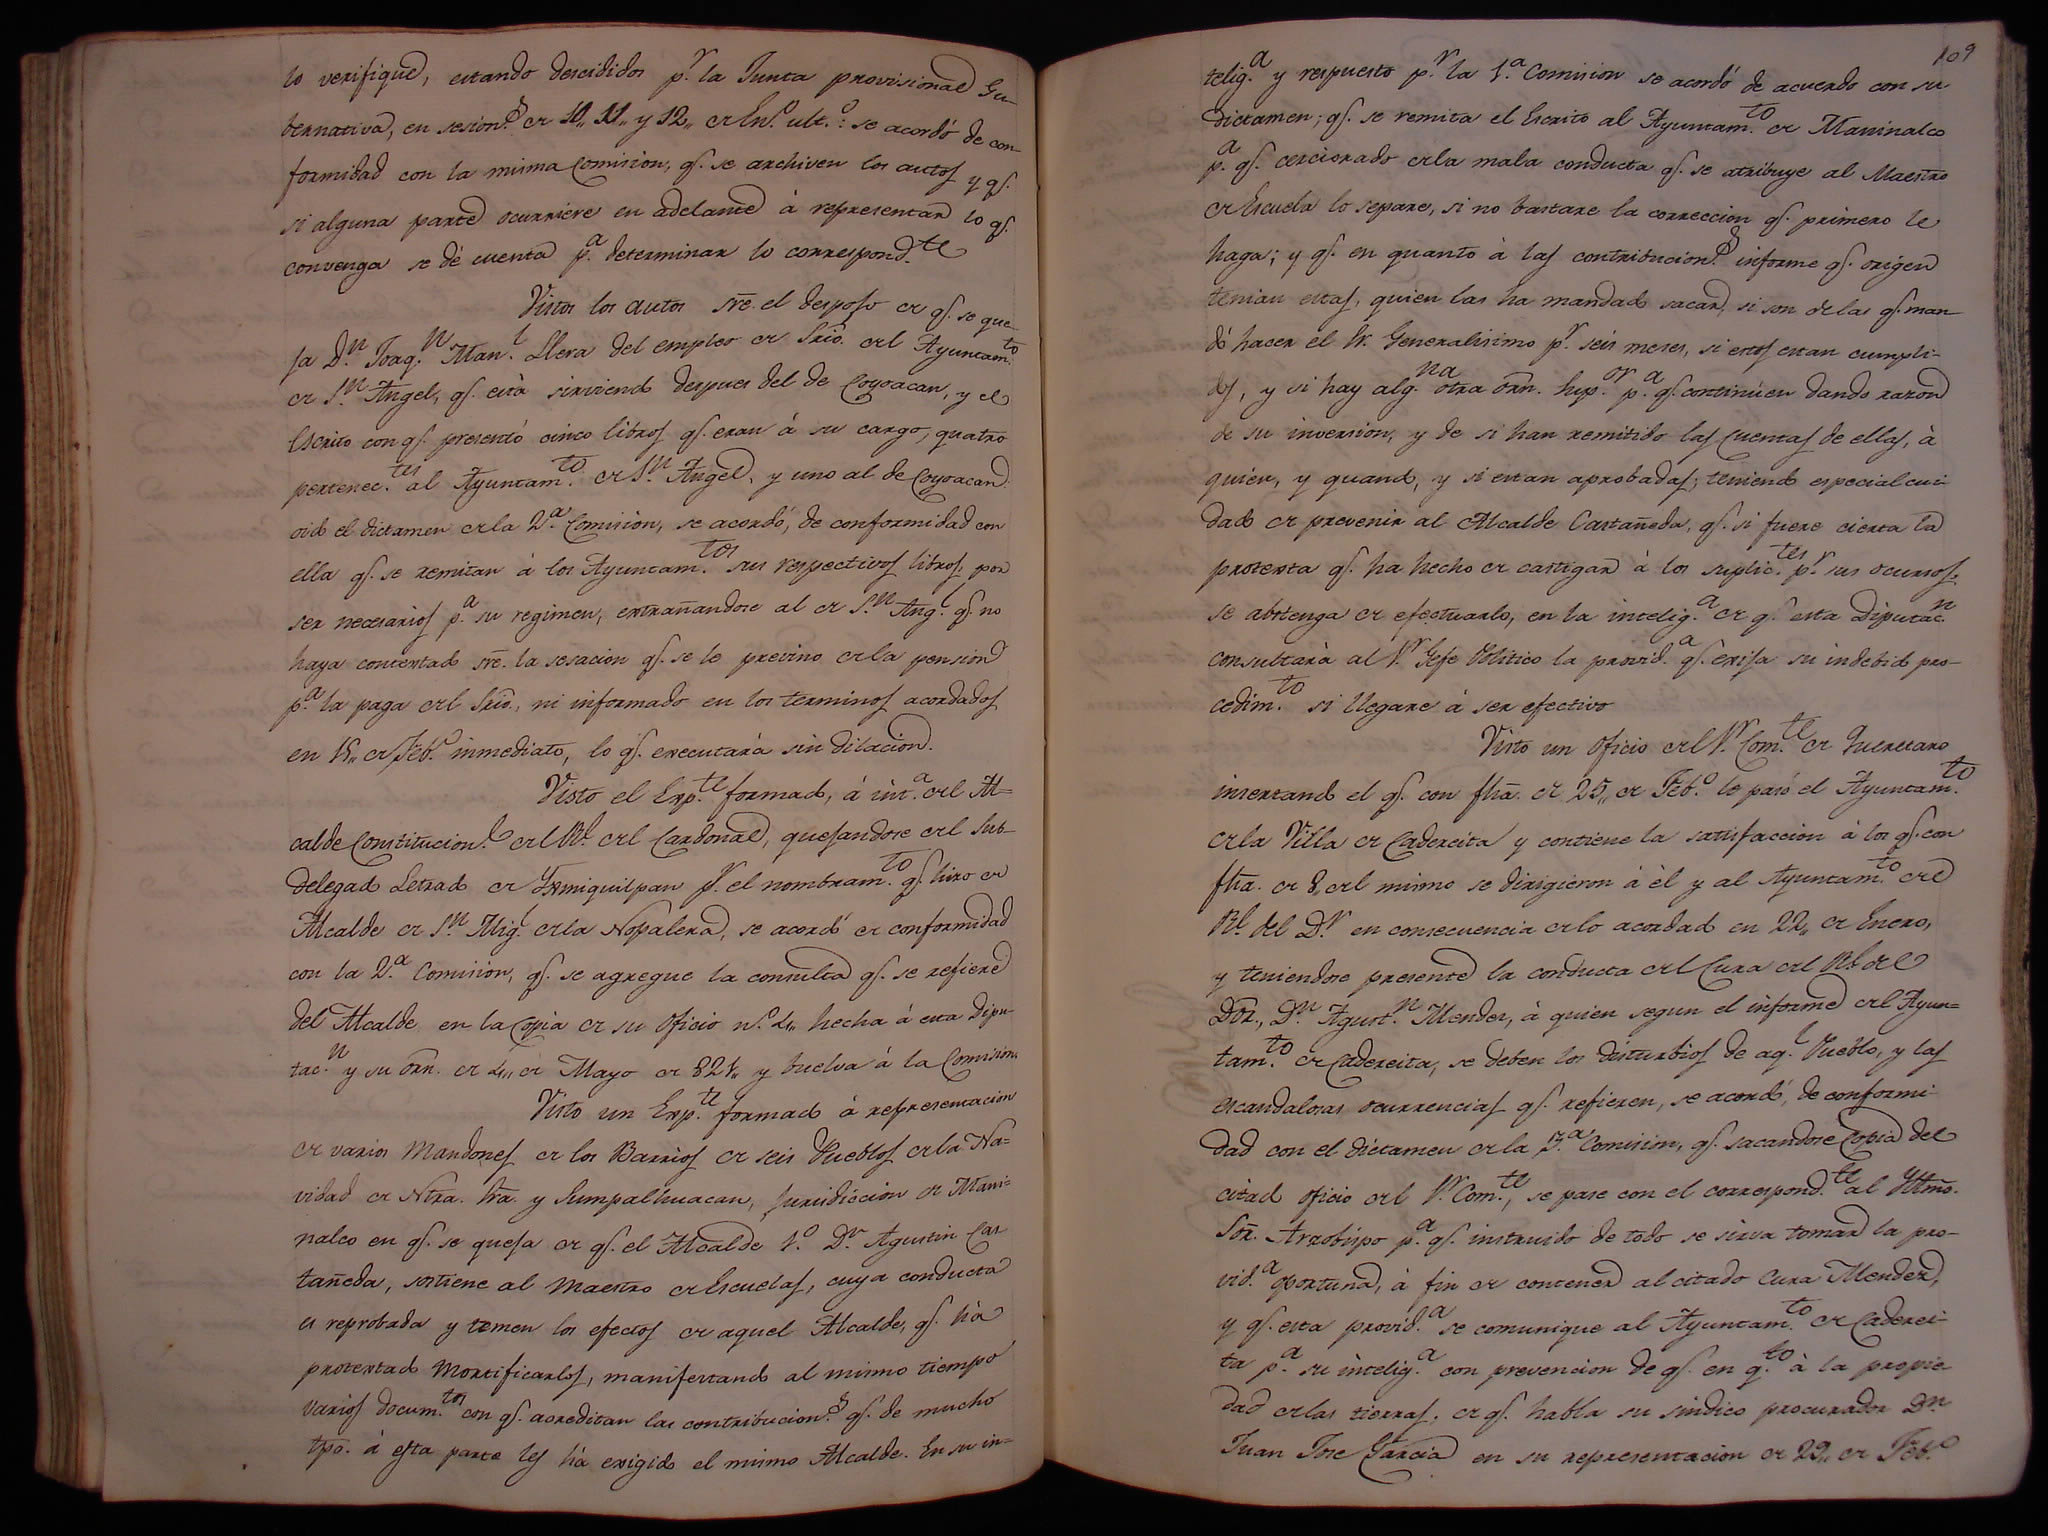 lo verifique, estando descididos p.r la Junta provisional Gu-
bernativa, en sesion.s de 10,, 11,, y 12,, de En.o ult.o: se acordó de con-
formidad con la misma Comision, q.e se archiven los autos y q.e
si alguna parte ocurriere en adelante à representar lo q.e
convenga se dé cuenta p.a determinar lo correspond.te
Vistos los autos sre. el despojo de q.e se que-
ja D.n Joaq.n Man.l Llera del empleo de Srio. del Ayuntam.to
de S.n Angel, q.e està sirviendo despues del de Coyoacan, y el
Escrito con q.e presentó cinco libros q.e eran á su cargo, quatro
pertenec.tes al Ayuntam.to de S.n Angel, y uno al de Coyoacan
oido el dictamen de la 2.a Comision, se acordó, de conformidad con
ella q.e se remitan à los Ayuntam.tos sus respectivos libros, por
ser necesarios p.a su regimen, extrañandose al de S.n Ang.l q.e no
haya contestado sre. la sesacion q.e se le previno de la pension
p.a la paga del Srio., ni informado en los terminos acordados
en 15,, de Feb.o inmediato, lo q.e executarà sin dilacion.
Visto el Exp.te formado, á inst.a del Al=
calde Constitucion.l del Rl. del Cardonal, quejandose del Sub-
delegado Letrado de Yxmiquilpan p.r el nombram.to q.e hizo de
Alcalde de S.n Mig.l de la Nopalera, se acordó de conformidad
con la 2.a Comision, q.e se agregue la consulta q.e se refiere
del Alcalde en la Copia de su Oficio n.o 4,, hecha á esta Dipu
tac.n y su orn. de 4,, de Mayo de 821,, y buelva à la Comision.
Visto un Exp.te formado à representacion
de varios Mandones de los Barrios de seis Pueblos de la Na=
vidad de Ntra. Sra. y Sumpalhuacan, Jurisdiccion de Mani-
nalco en q.e se queja de q.e el Alcalde 1.o D.n Agustin Cas
tañeda, sostiene al Maestro de Escuelas, cuya conducta
es reprobada y temen los efectos de aquel Alcalde, q.e hà
protestado Mortificarlos, manifestando al mismo tiempo
varios docum.tos con q.e acreditan las contribucion.s q.e de mucho
tpo. á esta parte les hà exigido el mismo Alcalde. En su in-
109
telig.a y respuesto p.r la 1.a Comision se acordó de acuerdo con su
dictamen; q.e se remita el Escrito al Ayuntam.to de Maninalco
p.a q.e cerciorado de la mala conducta q.e se atribuye al Maestro
de Escuela lo separe, si no bastare la correccion q.e primero le
haga; y q.e en quanto à las contribucion.s informe q.e origen
tenian estas, quien las ha mandado sacar, si son de las q.e man-
dó hacer el Sr. Generalisimo p.r seis meses, si estos estan cumpli-
dos, y si hay alg.na otra orn. sup.or p.a q.e continúen dando razon
de su inversion, y de si han remitido las Cuentas de ellas, à
quien, y quando, y si estan aprobadas; teniendo especial cui-
dado de prevenir al Alcalde Castañeda, q.e si fuere cierta la
protesta q.e ha hecho de castigar à los suplic.tes p.r sus ocursos,
se abstenga de efectuarlo, en la intelig.a de q.e esta Diputac.n
consultarà al S.r Gefe Politico la provid.a q.e exija su indebido pro-
cedim.to si llegare à ser efectivo
Visto un Oficio del S.r Com.te de Queretaro
insertando el q.e con fha. de 25,, de Feb.o le pasó el Ayuntam.to
de la Villa de Cadereita y contiene la satisfaccion à los q.e con
fha. de 8 del mismo se dirigieron à èl y al Ayuntam.to del
Rl. del D.r en consecuencia de lo acordado en 22,, de Enero,
y teniendose presente la conducta del Cura del Rl. del
Dor., D.n Agust.n Mendez, à quien segun el informe del Ayun=
tam.to de Cadereita, se deben los disturbios de aq.l Pueblo, y las
escandalosas ocurrencias q.e refieren, se acordó, de conformi-
dad con el dictamen de la 3.a Comision, q.e sacandose Copia del
citado oficio del S.r Com.te, se pase con el correspond.te al Yltmo.
Sor. Arzobispo p.a q.e instruido de todo se sirva tomar la pro-
vid.a oportuna, à fin de contener al citado Cura Mendez,
y q.e esta provid.a se comunique al Ayuntam.to de Caderei-
ta p.a su intelig.a con prevencion de q.e en q.to à la propie
dad de las tierras, de q.e habla su sindico procurador D.n
Juan Jose Garcia en su representacion de 22,, de Feb.o